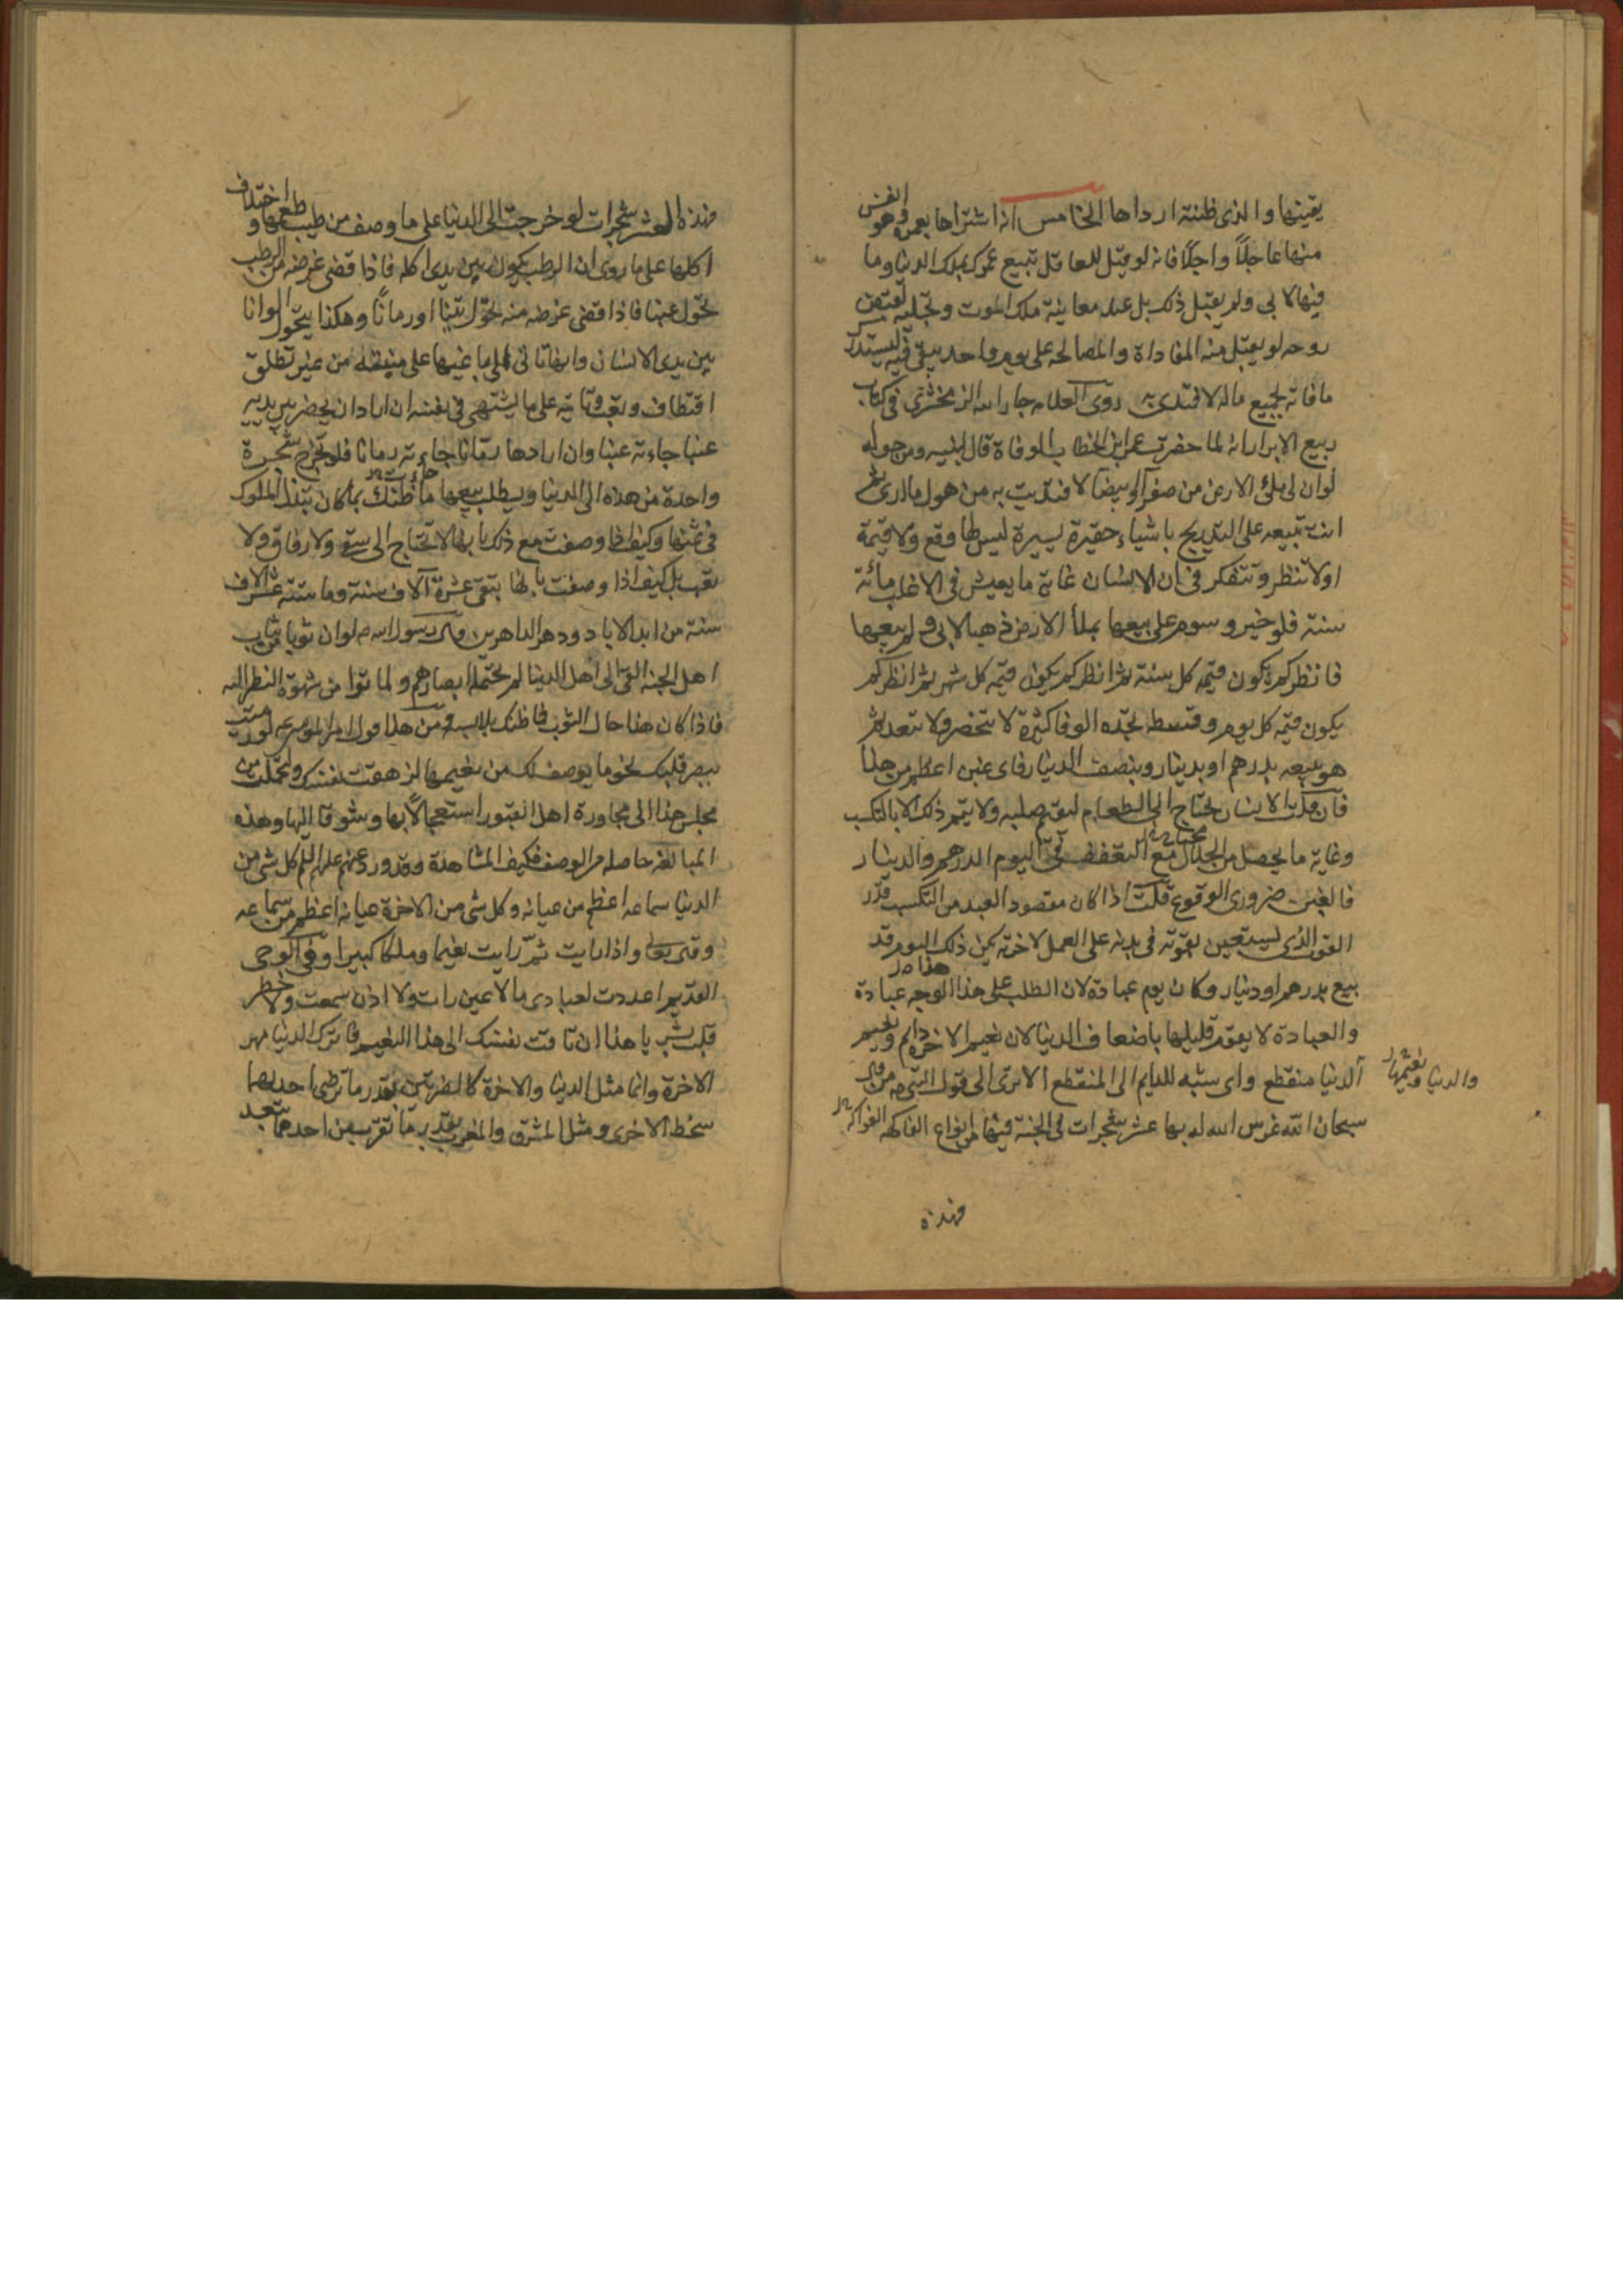 يقينها والذي ظننته ارداها الخامس انه اشتراها بعمره وهو انفس
منها عاجلاً واجلاً فانه لو قيل للعاقل تبيع عمرك بملك الدنيا وما
فيها لابى ولم يقبل ذلك بل عند معاينة ملك الموت وتجليه لقبض
روحه لو يقبل منه المفاداة والمصالحة على يوم واحد يبقى فيه ليستدرك
ما فاته بجميع ماله لافتدى به روى العلامه جار الله الزمخشري في كتاب
ربيع الابرار انه لما حضرت عمر ابن الخطاب الوفاة قال لبنيه ومن حوله
لو ان لي ملئ الارض من صفرآ او بيضآ لافتديت به من هول ما ارى ثم
انت تبيعه على التدريج باشياء حقيرة يسيرة ليس لها وقع ولا قيمة
اولا تنظر وتتفكر في ان الانسان غاية ما يعيش في الاغلب مائة
سنة فلو خير وسوم على بيعها بملأ الارض ذهبا لابى ولم يبعها
فانظركم يكون قيمة كل سنة ثم انظركم يكون قيمة كل شهر ثم انظركم
يكون قيمة كل يوم وقسطه تجده الوفا كثيرة لا تنحصر ولا تتعد ثم
هو يبيعه بدرهم او بدينار وبنصف الدينار فاى غبن اعظم من هذا
فآن قلت الانسان يحتاج الى الطعام ليقيم صلبه ولا يتم ذلك الا بالتكسب
وغاية ما يحصل من الحلال مع التعفف في اليوم الدرهم والدينار
فالغبن ضرورى الوقوع قلت اذا كان مقصود العبد من التكسب قدر
القوت الذى ليستعين بقوته في بدنه على العمل لاخرته لم يكن ذلك اليوم قد
بيع بدرهم او دينار وكان يوم عبادة لان الطلب على هذا الوجه عبادة
والعبادة لا يقوم قليلها باضعاف الدنيا لان نعيم الاخرة دايم ونعيم
الدنيا منقطع واى شبه للدايم الى المنقطع الا ترى الى قول النبي ص من قال
والدنيا ونعيمها
سبحان الله غرس الله له بها عشر شجرات في الجنة فيها من انواع الفاكهه الفواكه
فهذه
فهذه العشر شجرات لو خرجت الى الدنيا على ما وصف من طيب طعمها واختلاف
اكلها على ما روى ان الرطب يكون بين يدى اكله فاذا قضى غرضه من الرطب
تحول عنبا فاذا قضى غرضه منه تحول تينا او رمانًا وهكذا يتحول الوانا
بين يدى الانسان وانها تاتى الى
اقتطاف وتعب وتاتيه على ما يشتهى في نفسه ان اراد ان يحضر بين يديه
عنبا جاءته عنبا وان ارادها رمّانا جاءته رمانا فلو تخرج شجرة
واحدة من هذه الى الدنيا ويطلب بيعها ما ظنك بما كان تبذل الملوك
في ثمنها وكيف اذا وصفت مع ذلك بانها لا تحتاج الى سقي ولا رفاق ولا
تعب بل كيف اذا وصفت بانها تبقى عشرة آلاف سنة وما ستة عشر الاف
سنة من ابد الاباد ودهر الداهرين وقال رسول الله ص لو ان ثوبا من ثياب
اهل الجنة القى الى اهل الدنيا لم تحتمله ابصارهم ولماتوا من شهوة النظر اليه
فاذا كان هذا حال الثوب فما ظنك بلابسه ومن هذا قول امير المومنين ع لو رميت
ببصر قلبك نحو ما يوصف لك من نعيمها لزهقت نفسك ولتحملت من
مجلسى هذا الى مجاورة اهل القبور استعجالاً بها وشوقا اليها وهذه
المبالغه حاصله من الوصف فكيف المشاهدة وقد ورد عنهم عليهم السلم كل شى من
الدنيا سماعه اعظم من عيانه وكل شى من الاخرة عيانه اعظم من سماعه
وقال تعالى واذا رايت ثمّ رايت نعيما وملكا كبيرا وفي الوحى
القديم اعددت لعبادى ما لا عين رات ولا اذن سمعت ولا خطر
بقلب بشر يا هذا ان تاقت نفسك الى هذا النعيم فاترك الدنيا مهر
الاخرة وانما مثل الدنيا والاخرة كالضرتين بقدر ما ترضى احديهما
تسخط الاخرى ومثل المشرق والمغرب بقدر ما تقرب من احدهما تبعد